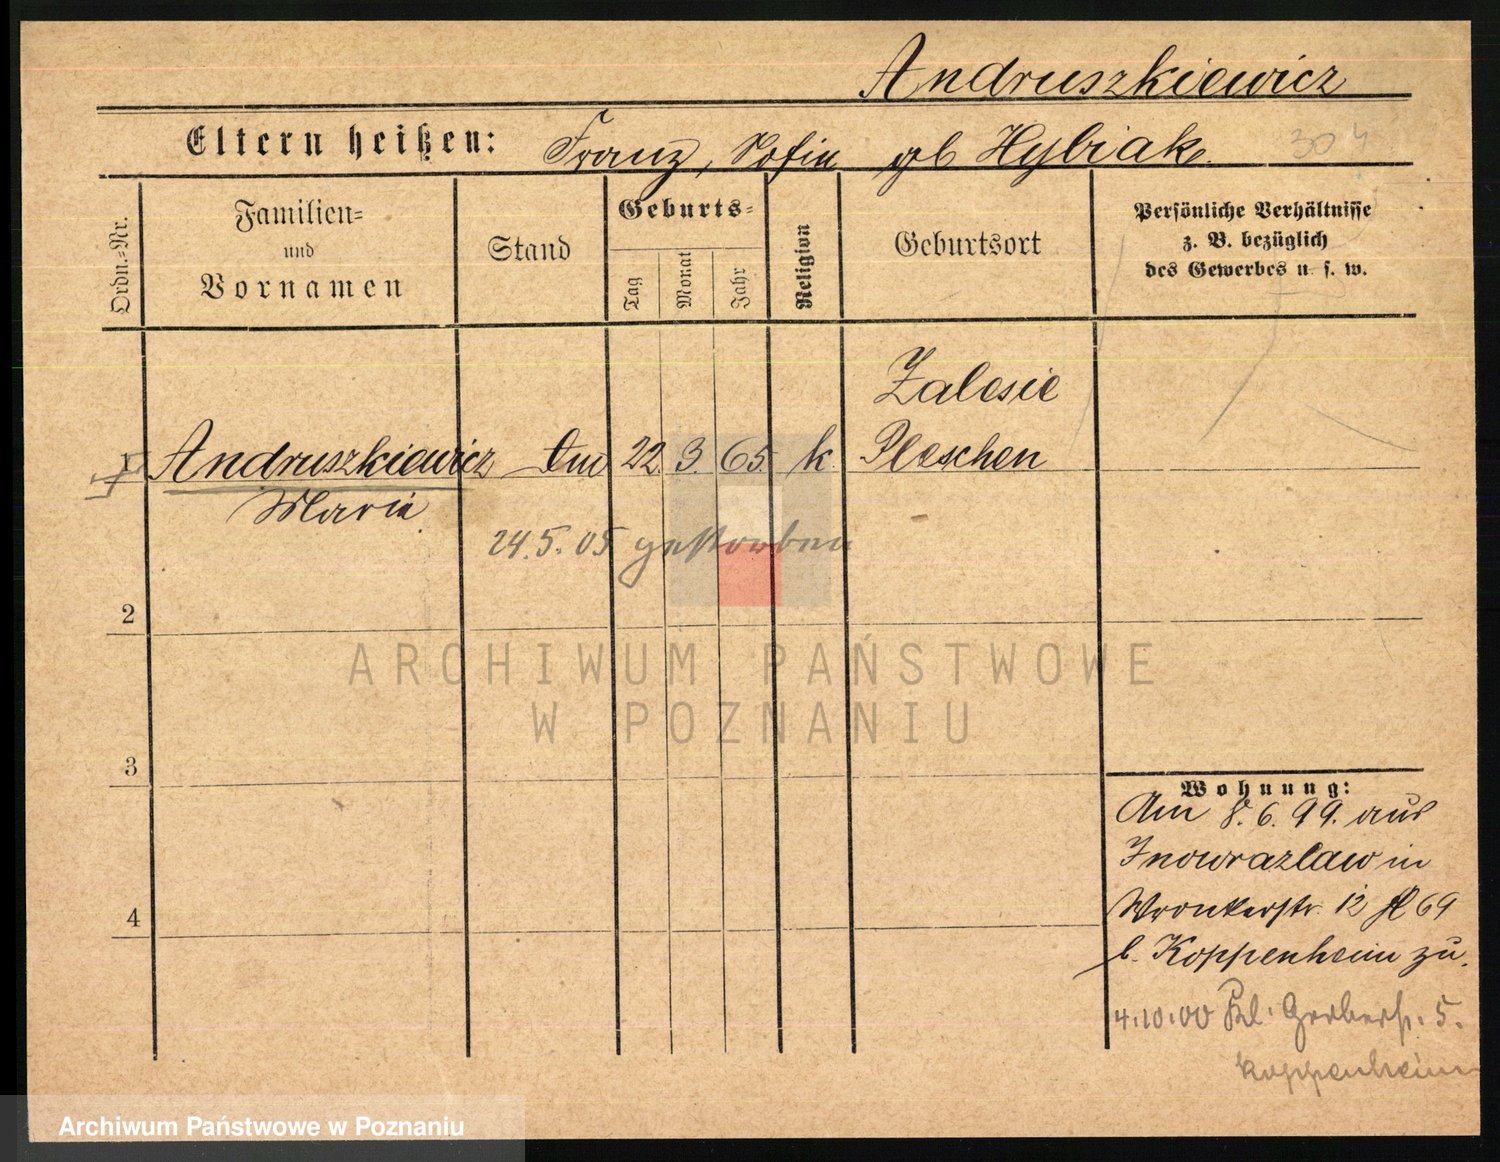 Andruszkiewicz
Eltern heißen: Franz, Sofia gb Hybiak.
304
Ordn.-Nr.
Familien-
und
Vornamen
Stand
Geburts-
Tag
Monat
Jahr
Religion
Geburtsort
Persönliche Verhältnisse
z. B. bezüglich
des Gewerbes u. s. w.
Zalesie
1 Andruszkiewicz 22. 3. 65. k. Pleschen
Maria
24.5.05 gestorben
2
ARCHIWUM PAŃSTWOWE
W POZNANIU
3
Wohnung:
Am 8.6.99. aus
Inowrazlaw in
Wronkerstr. 12 69
b. Koppenheim zu.
4
4.10.00 Kl. Gerberstr. 5.
Koppenheim
Archiwum Państwowe w Poznaniu